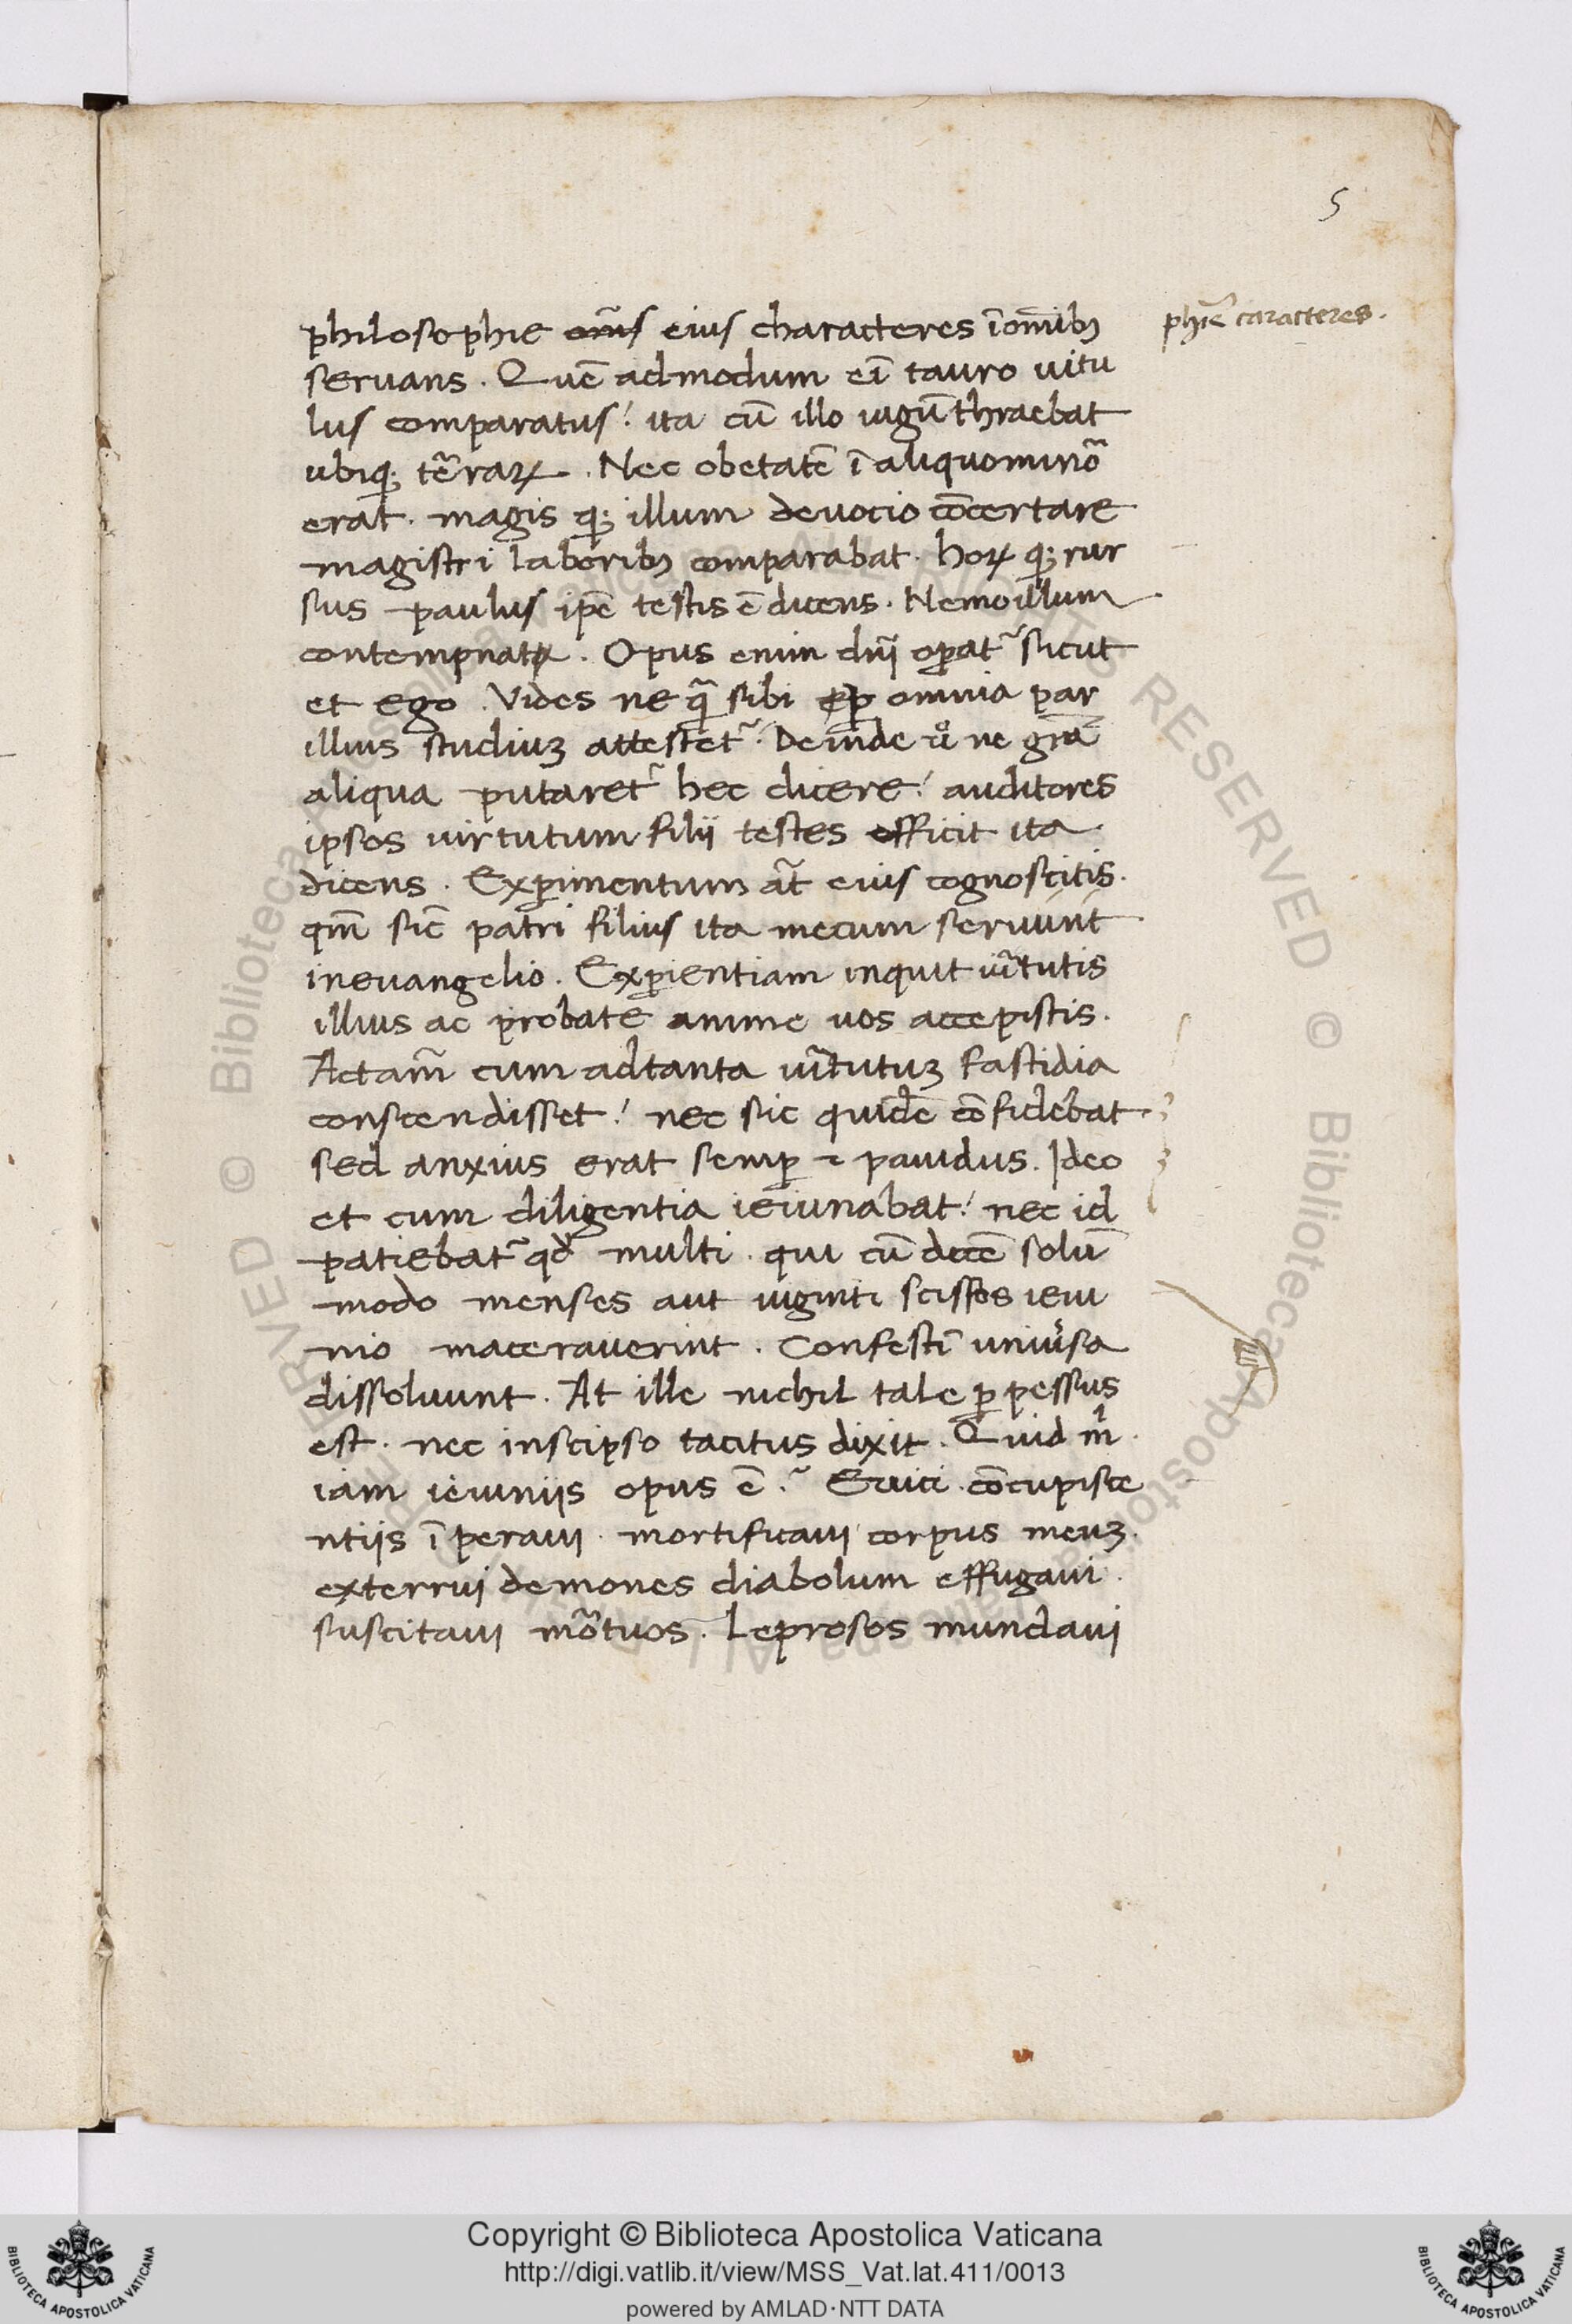 5
philosophie eius characteres ī om̄ib⁊
phīe caracteres.
seruans . Quē admodum eī tauro uitu
lus comparatus! ita cū illo iugū thraebat
ubiq; tērarꝝ . Nec ob etatē ī aliquo minō
erat . magis q; illum deuocio cōcertare
magistri laborib⁊ comparabat . horꝝ q; rur
sus paulus ip̄e testis ē dicens . Nemo illum
contempnat . Opus enim dn̄i oꝑat᷑ sicut
et ego . Vides ne q̄ sibi ꝑ omnia par
illius studiuꝫ attestet᷑ . Deinde uͦ ne gr̄a
aliqua putaret᷑ hec dicere! auditores
ipsos uirtutum filii testes efficit ita
dicens . Exꝑimentum aūt eius cognoscitis .
qm̄ sic̄ patri filius ita mecum seruiunt
in euangelio . Exꝑientiam inquit uĩtutis
illius ac probate anime uos accepistis .
Actam̄ cum ad tanta uĩtutuꝫ fastidia
conscendisset! nec sic quidē cōfidebat
sed anxius erat semꝑ ⁊ pauidus . Ideo
et cum diligentia ieiunabat! nec id
patiebat᷑ qd̓ multi . qui cū decē solū
modo menses aut uiginti scissos ieiu
nio macerauerint . Confestī uniu̓sa
dissoluunt . At ille nichil tale ꝑ pessus
est . nec in se ipso tacitus dixit . Quid mͥ
iam ieiuniis opus ē ? Euici . cōcupisce
ntiis īperaui . mortificaui corpus meuꝫ .
exterrui demones diabolum effugaui .
suscitaui mōtuos . Leprosos mundaui
Copyright © Biblioteca Apostolica Vaticana
http://digi.vatlib.it/view/MSS_Vat.lat.411/0013
powered by AMLAD·NTT DATA
BIBLIOTECA APOSTOLICA VATICANA
BIBLIOTECA APOSTOLICA VATICANA